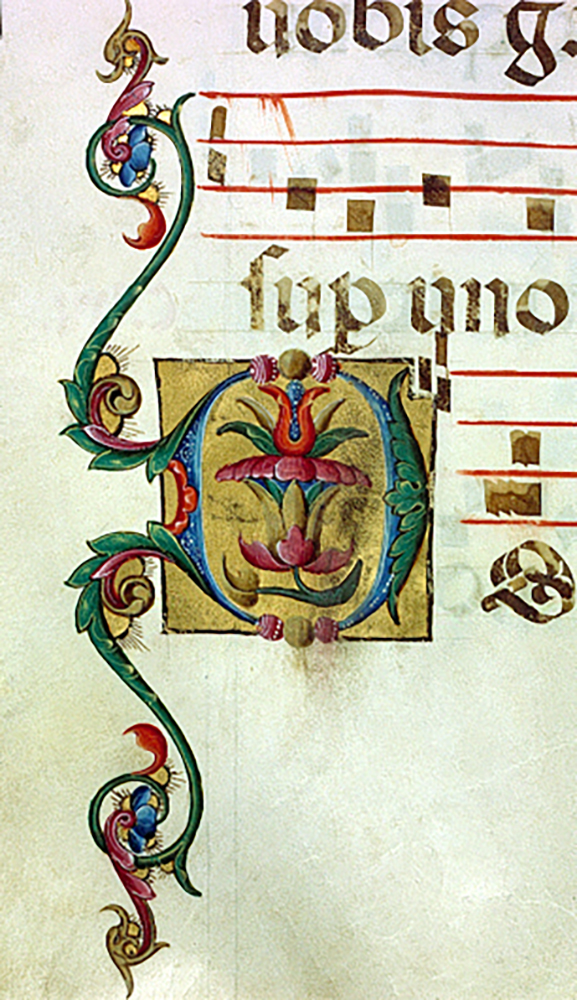 nobis g.
sup uno
O